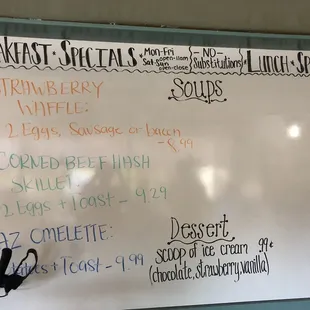 AKFAST · SPECIALS · Mon-Fri open-11am Sat-Sun open-close {- NO - Substitutions} · LUNCH · SP
STRAWBERRY
WAFFLE:
2 Eggs, Sausage or bacon
- 8.99
CORNED BEEF HASH
SKILLET:
2 Eggs + Toast - 9.29
AZ OMELETTE:
+ Toast - 9.99
Soups
Dessert
scoop of ice cream 99¢
(chocolate, strawberry, vanilla)